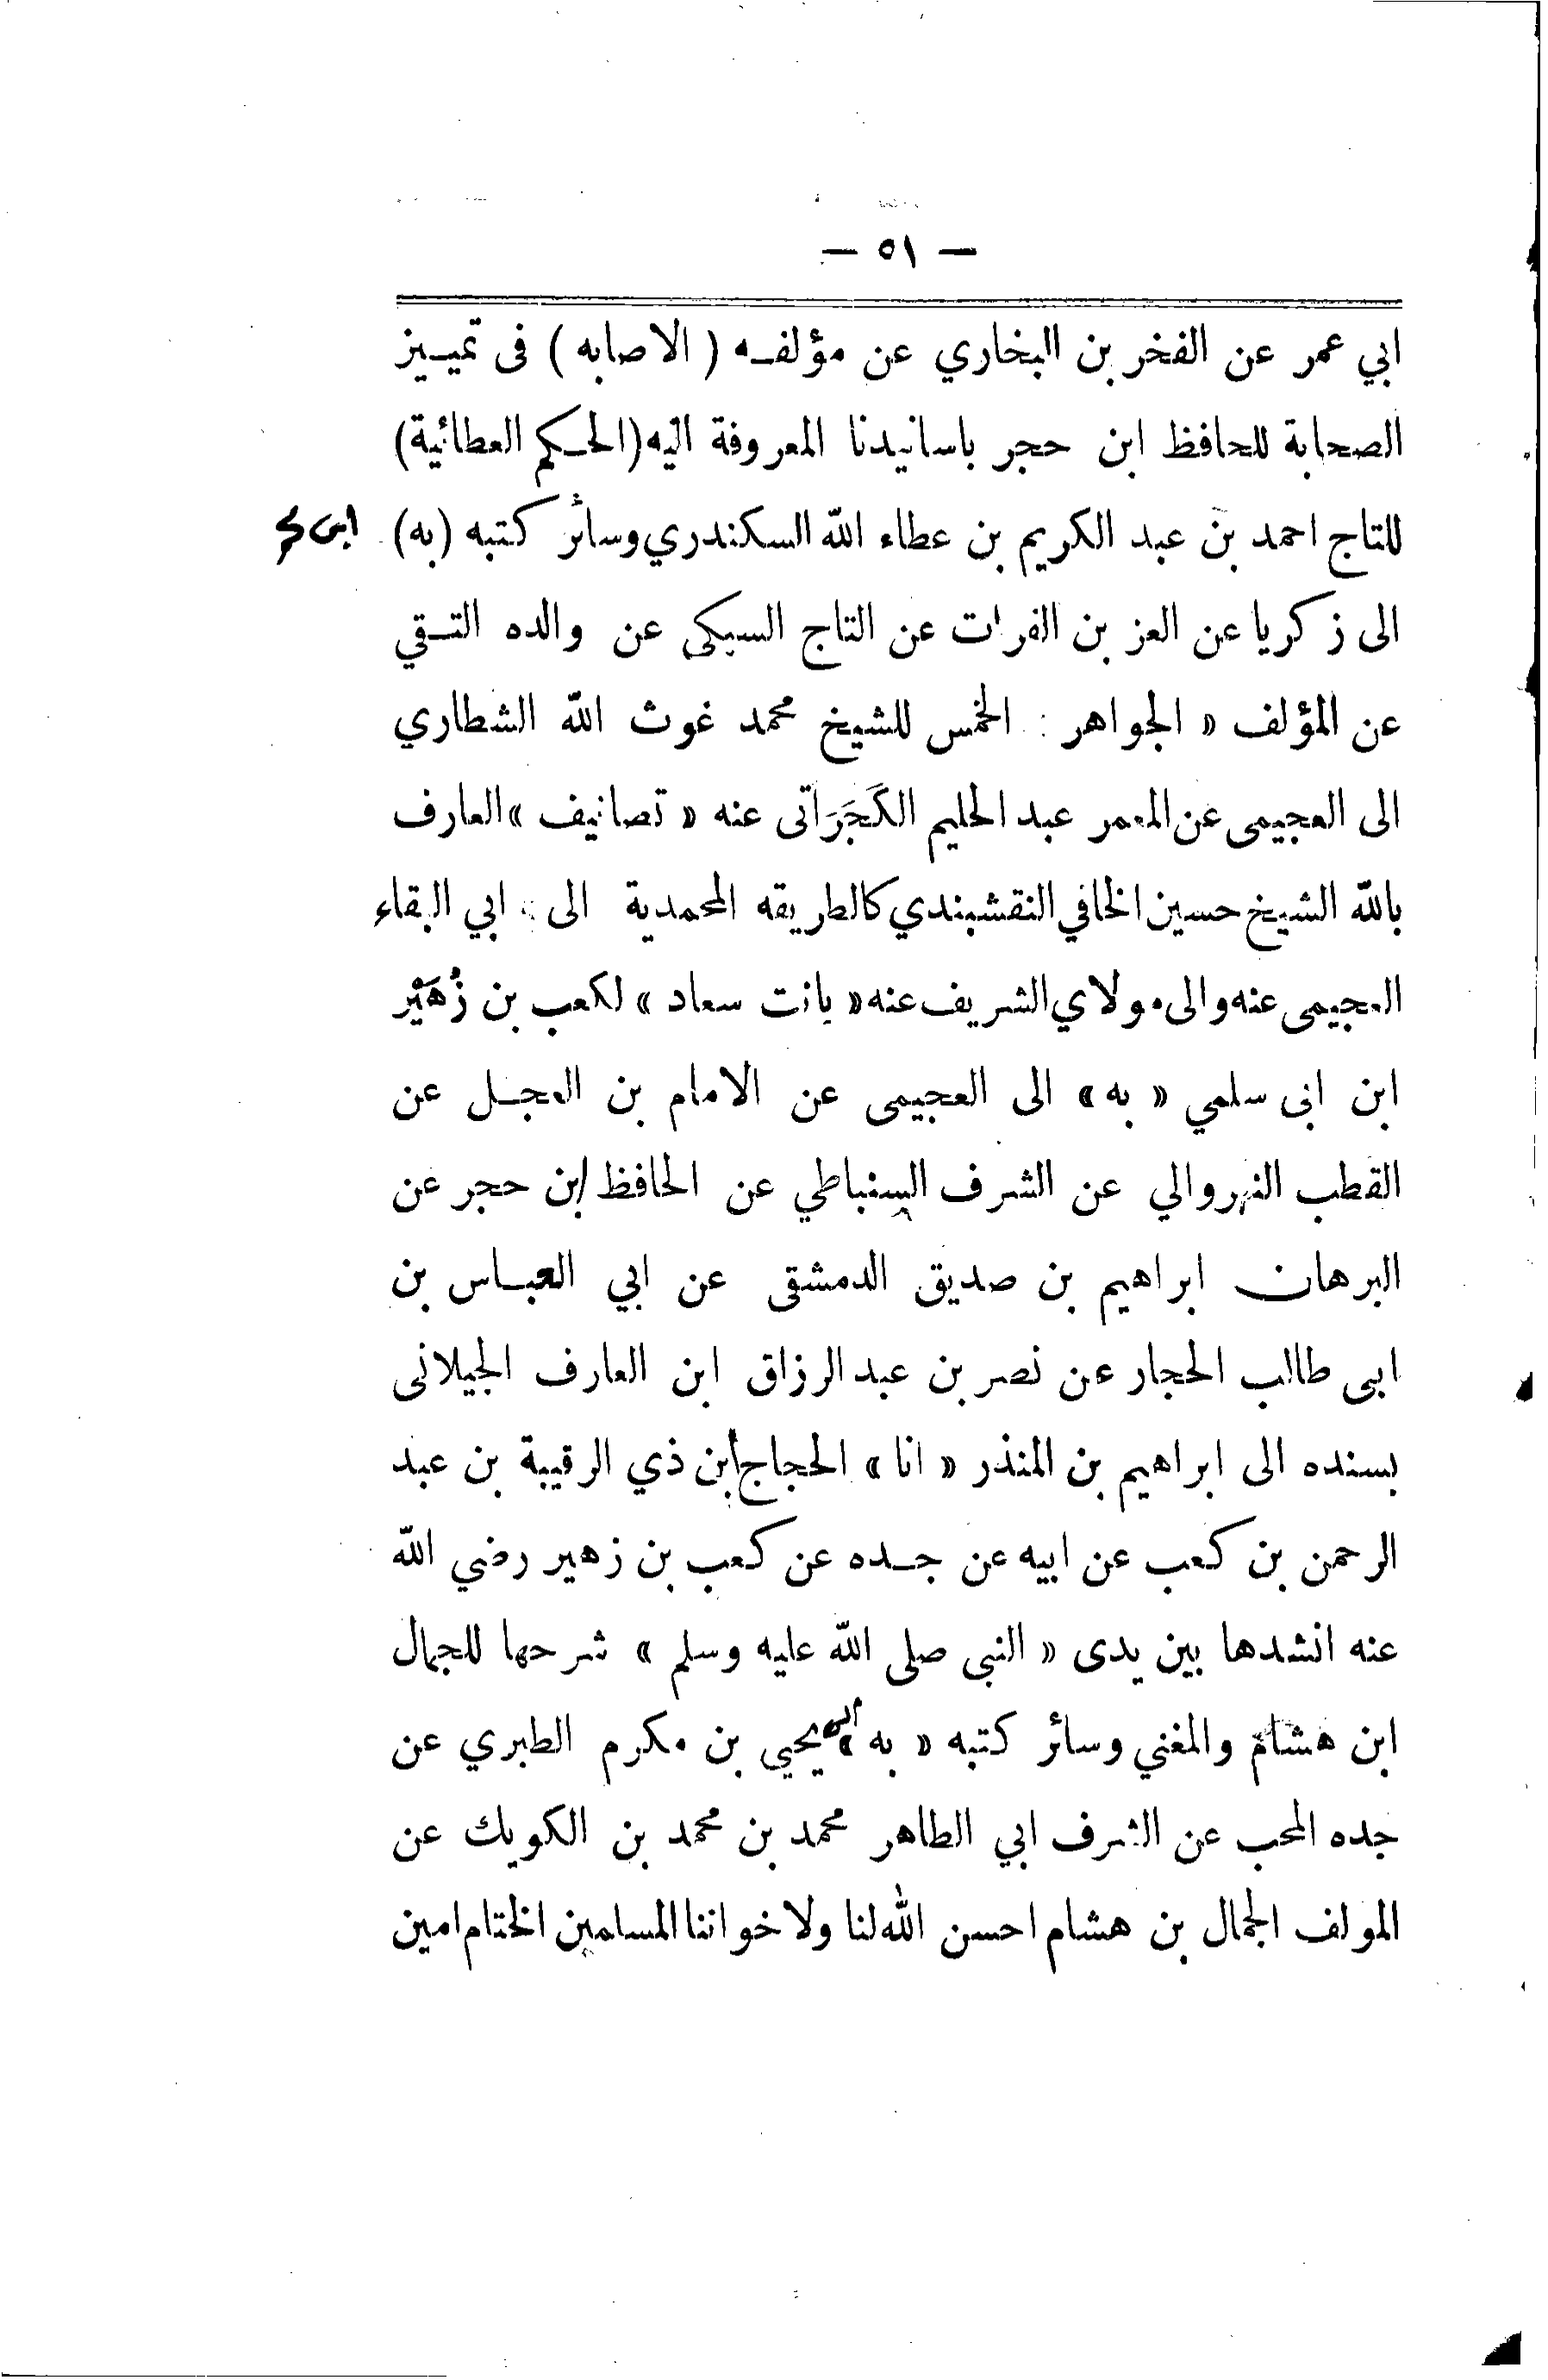 — ٥١ —
ابي عمر عن الفخر بن البخاري عن مؤلفـه ( الاصابه ) فى تمييـز
الصحابة للحافظ ابن حجر باسانيدنا المعروفة اليه (الحكم العطائية)
للتاج احمد بن عبد الكريم بن عطاء الله السكندري وسائر كتبه (به)
الى زكريا عن العز بن الفرات عن التاج السبكى عن والده التـقي
عن المؤلف « الجواهر : الخمس للشيخ محمد غوث الله الشطاري
الى العجيمى عن المعمر عبد الحليم الكَجَرَاتى عنه « تصانيف » العارف
بالله الشيخ حسين الخافي النقشبندي كالطريقه المحمدية الى ابي البقاء
العجيمى عنه والى مولاي الشريف عنه « بانت سعاد » لكعب بن زُهَيْر
ابن ابى سلمي « به » الى العجيمى عن الامام بن العجـل عن
القطب النهروالي عن الشرف السنباطي عن الحافظ ابن حجر عن
البرهان ابراهيم بن صديق الدمشقى عن ابي العبـاس بن
ابى طالب الحجار عن نصر بن عبد الرزاق ابن العارف الجيلانى
بسنده الى ابراهيم بن المنذر « انا » الحجاج أبن ذي الرقيبة بن عبد
الرحمن بن كعب عن ابيه عن جـده عن كعب بن زهير رضي الله
عنه انشدها بين يدى « النبى صلى الله عليه وسلم » شرحها للجمال
ابن هشام والمغني وسائر كتبه « به » الى يحيي بن مكرم الطبري عن
جده المحب عن الشرف ابي الطاهر محمد بن محمد بن الكويك عن
المولف الجمال بن هشام احسن الله لنا ولاخواننا المسلمين الختام امين